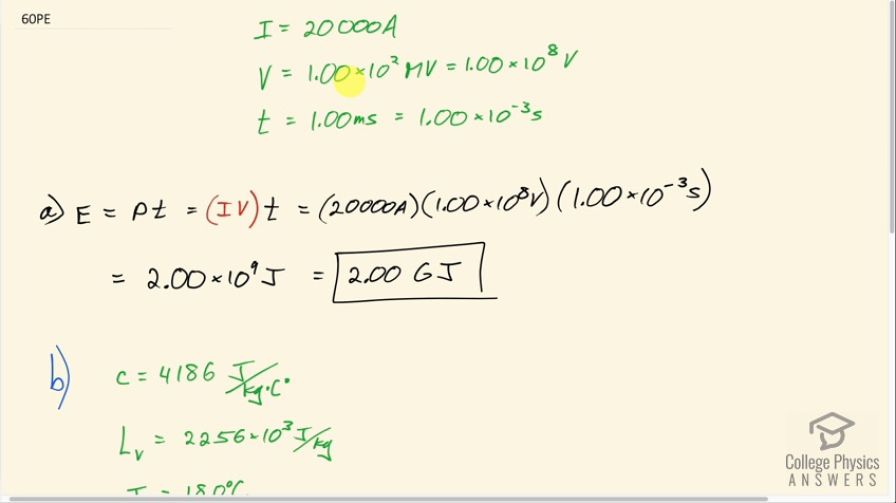 60PE
I = 20000A
V = 1.00×10² MV = 1.00×10⁸ V
t = 1.00ms = 1.00×10⁻³s
a) E = Pt = (IV)t = (20000A)(1.00×10⁸V)(1.00×10⁻³s)
= 2.00×10⁹ J = 2.00 GJ
b)
c = 4186 J/kg·C°
Lᵥ = 2256×10³ J/kg
College Physics
ANSWERS